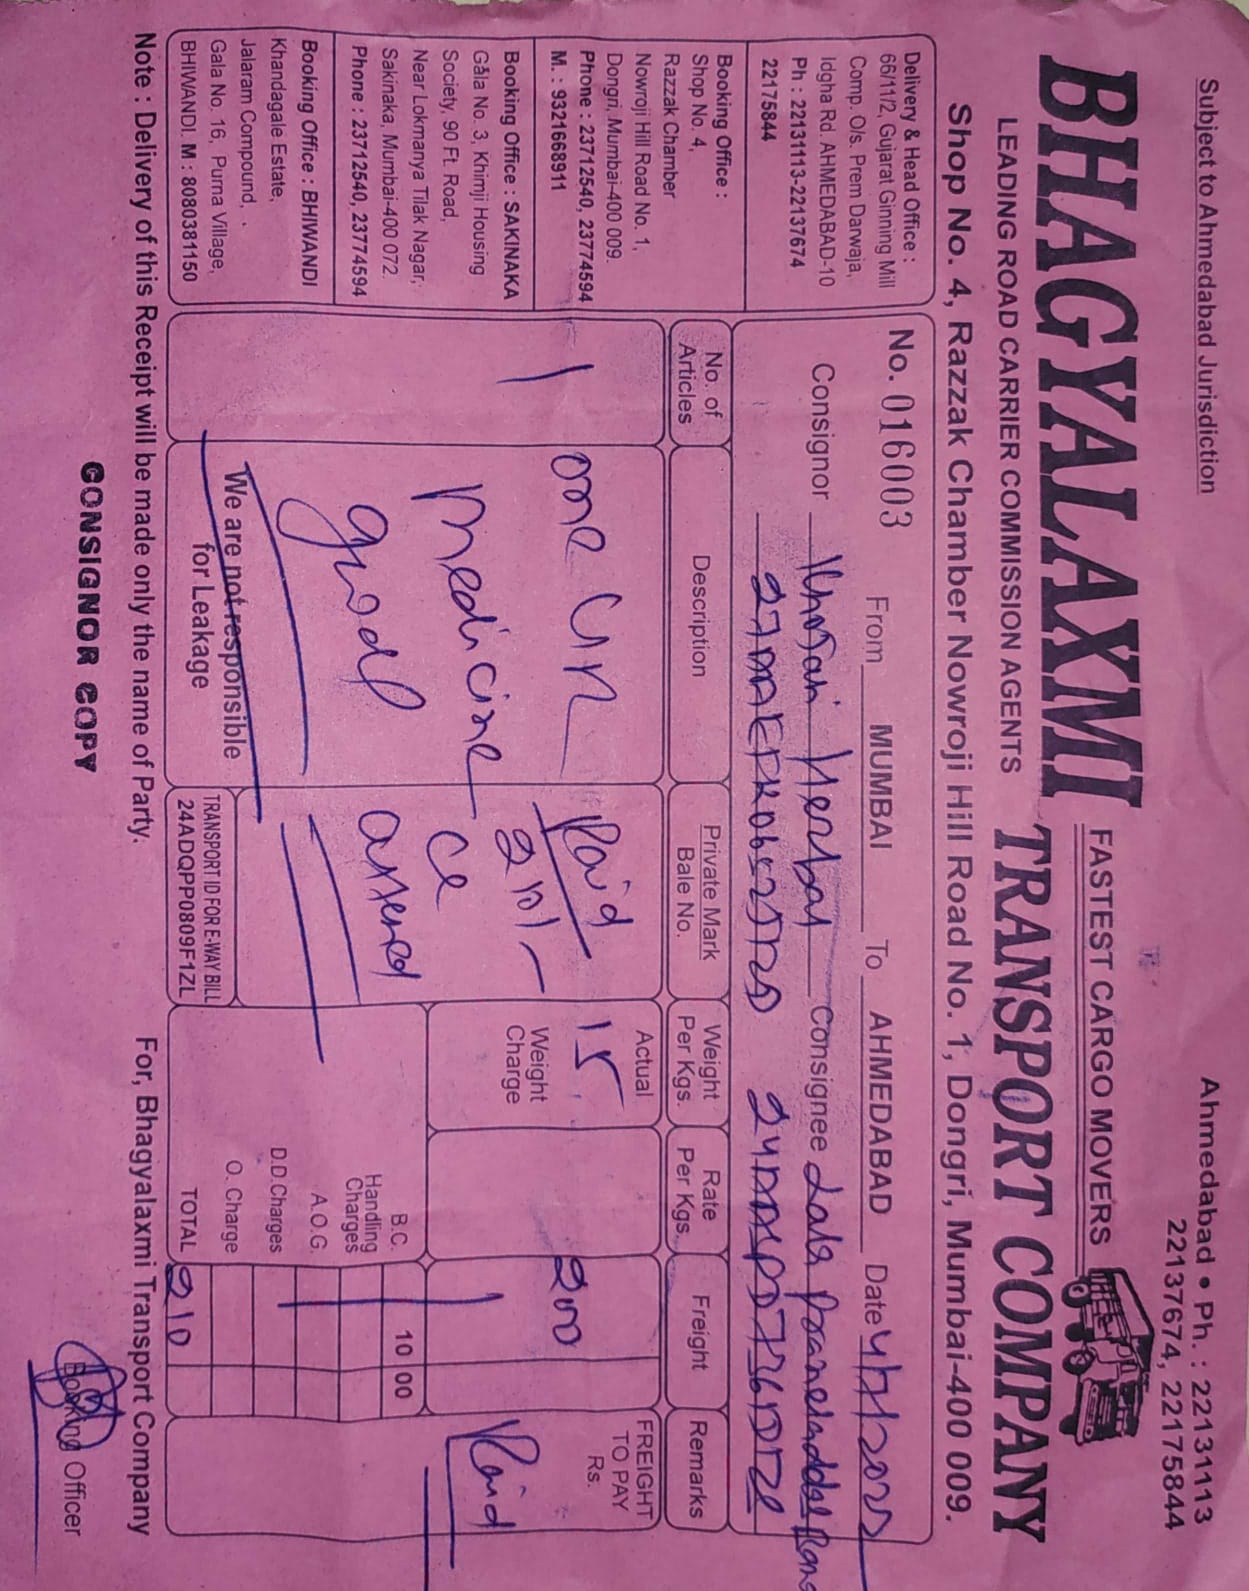 Subject to Ahmedabad Jurisdiction
Ahmedabad • Ph. : 22131113
22137674, 22175844
BHAGYALAXMI
FASTEST CARGO MOVERS
TRANSPORT COMPANY
LEADING ROAD CARRIER COMMISSION AGENTS
Shop No. 4, Razzak Chamber Nowroji Hill Road No. 1, Dongri, Mumbai-400 009.
Delivery & Head Office :
66/11/2, Gujarat Ginning Mill
Comp. O/s. Prem Darwaja,
Idgha Rd. AHMEDABAD-10
Ph : 22131113-22137674
22175844
Booking Office :
Shop No. 4,
Razzak Chamber
Nowroji Hill Road No. 1,
Dongri, Mumbai-400 009.
Phone : 23712540, 23774594
M. : 9321668911
Booking Office : SAKINAKA
Gala No. 3, Khimji Housing
Society, 90 Ft. Road,
Near Lokmanya Tilak Nagar,
Sakinaka, Mumbai-400 072.
Phone : 23712540, 23774594
Booking Office : BHIWANDI
Khandagale Estate,
Jalaram Compound,
Gala No. 16, Purna Village,
BHIWANDI. M : 8080381150
No. 016003 From MUMBAI To AHMEDABAD Date
Consignor Herbal Consignee
No. of Articles
Description
Private Mark
Bale No.
Weight
Per Kgs.
Rate
Per Kgs.
Freight
Remarks
1
one
medicine
good
Paid
Actual
15
Weight
Charge
200
FREIGHT
TO PAY
Rs.
Paid
We are not responsible
for Leakage
TRANSPORT ID FOR E-WAY BILL
24ADQPP0809F1ZL
B.C. 10 00
Handling
Charges
A.O.G.
D.D.Charges
O. Charge
TOTAL 210
Note : Delivery of this Receipt will be made only the name of Party.
For, Bhagyalaxmi Transport Company
CONSIGNOR COPY
Booking Officer